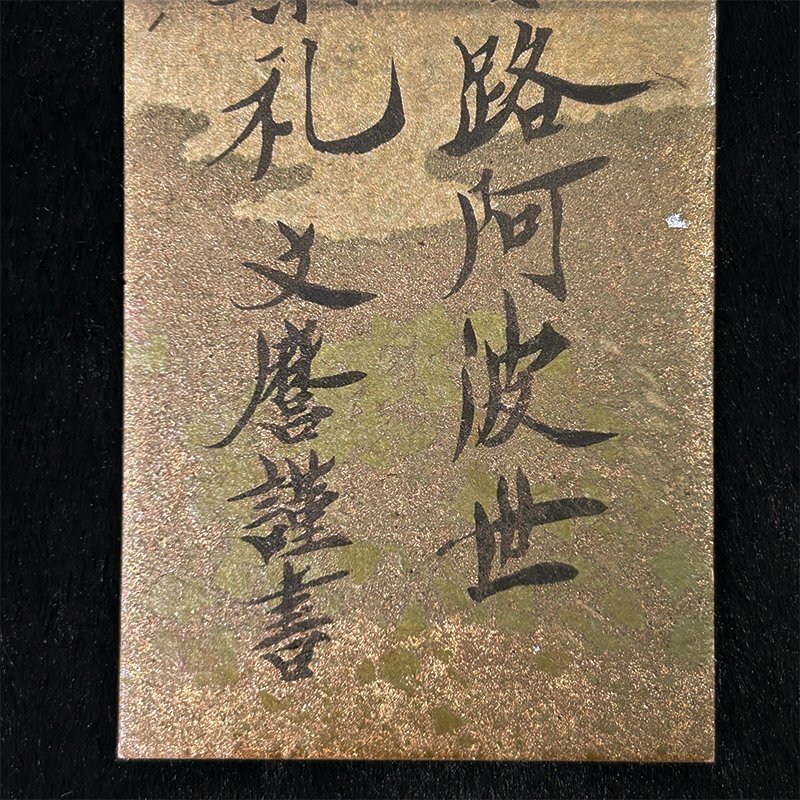 路阿波世
礼 文麿謹書